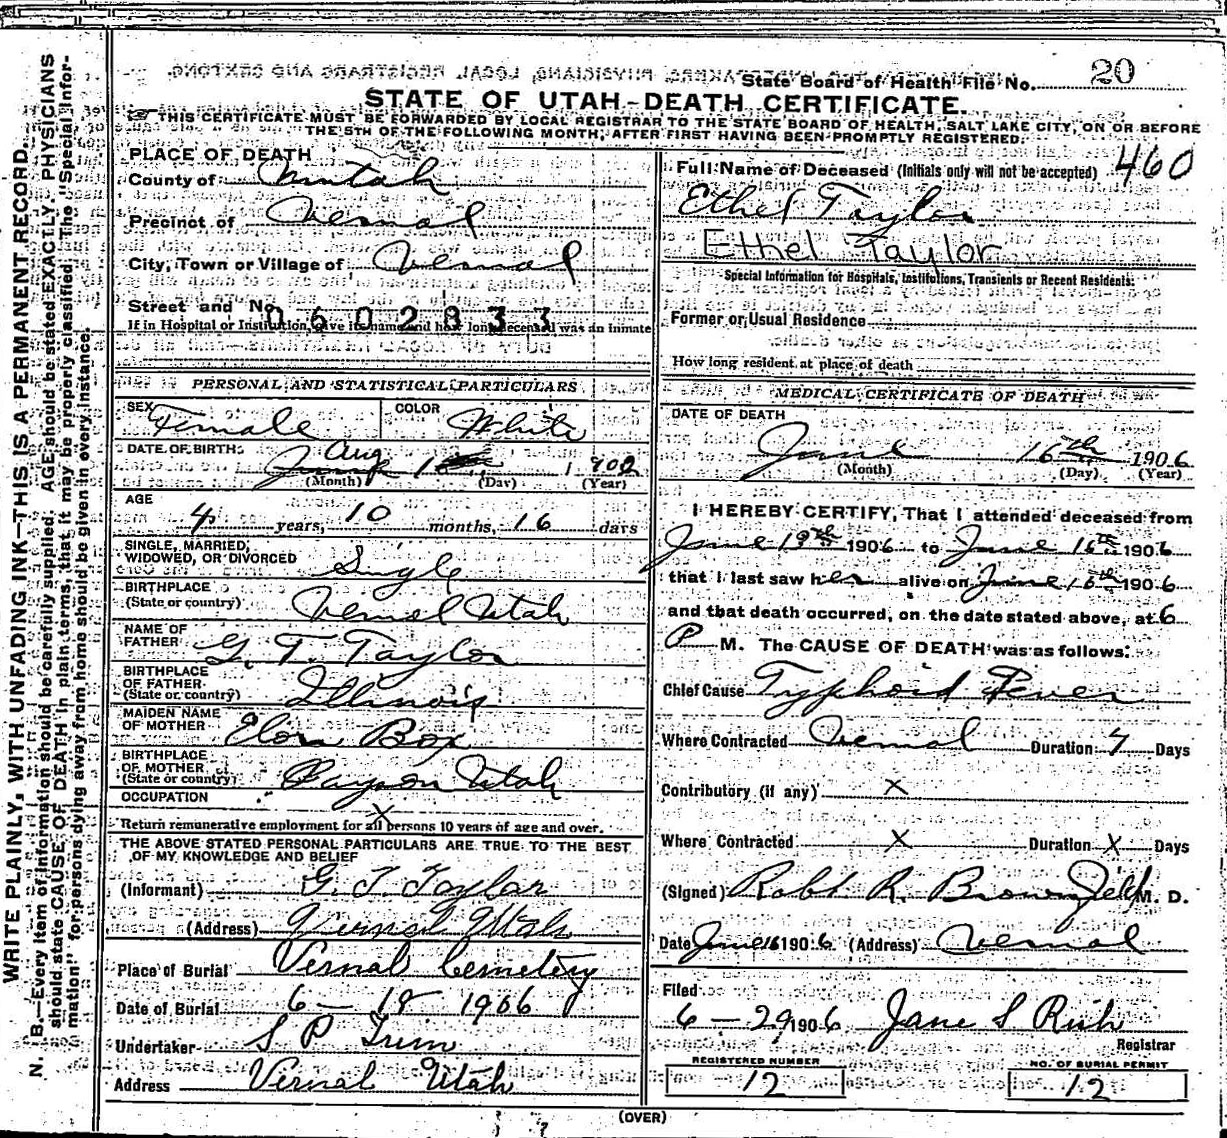 State Board of Health File No. 20
STATE OF UTAH-DEATH CERTIFICATE.
THIS CERTIFICATE MUST BE FORWARDED BY LOCAL REGISTRAR TO THE STATE BOARD OF HEALTH, SALT LAKE CITY, ON OR BEFORE
THE 5TH OF THE FOLLOWING MONTH, AFTER FIRST HAVING BEEN PROMPTLY REGISTERED.
WRITE PLAINLY, WITH UNFADING INK—THIS IS A PERMANENT RECORD.
N. B.—Every item of information should be carefully supplied. AGE should be stated EXACTLY. PHYSICIANS
should state CAUSE OF DEATH in plain terms, that it may be properly classified. The "Special Infor-
mation" for persons dying away from home should be given in every instance.
PLACE OF DEATH
County of
Precinct of Vernal
City, Town or Village of Vernal
Street and No.
0602833
If in Hospital or Institution, give its name and how long deceased was an inmate
PERSONAL AND STATISTICAL PARTICULARS
SEX Female COLOR White
DATE OF BIRTH Aug 1 1902
(Month) (Day) (Year)
AGE
4 years, 10 months, 16 days
SINGLE, MARRIED,
WIDOWED, OR DIVORCED Single
BIRTHPLACE
(State or country) Vernal Utah
NAME OF
FATHER G. T. Taylor
BIRTHPLACE
OF FATHER
(State or country) Illinois
MAIDEN NAME
OF MOTHER Box
BIRTHPLACE
OF MOTHER
(State or country) Payson Utah
OCCUPATION X
Return remunerative employment for all persons 10 years of age and over.
THE ABOVE STATED PERSONAL PARTICULARS ARE TRUE TO THE BEST
OF MY KNOWLEDGE AND BELIEF
(Informant) G. T Taylor
(Address) Vernal Utah
Place of Burial Vernal Cemetery
Date of Burial 6 - 18 1906
Undertaker S P Trim
Address Vernal Utah
Full Name of Deceased (Initials only will not be accepted) 460
Ethel Taylor
Ethel Taylor
Special Information for Hospitals, Institutions, Transients or Recent Residents:
Former or Usual Residence
How long resident at place of death
MEDICAL CERTIFICATE OF DEATH
DATE OF DEATH
June 16th 1906
(Month) (Day) (Year)
I HEREBY CERTIFY, That I attended deceased from
June 1906 to June 16th 1906
that I last saw her alive on June 16th 1906
and that death occurred, on the date stated above, at 6
P M. The CAUSE OF DEATH was as follows:
Chief Cause Typhoid Fever
Where Contracted Vernal Duration 7 Days
Contributory (if any) X
Where Contracted X Duration X Days
(Signed) Robt R. Brownfield M. D.
Date June 16 1906 (Address) Vernal
Filed
6 - 29 1906 Jane S Rich
Registrar
REGISTERED NUMBER
12
NO. OF BURIAL PERMIT
12
(OVER)